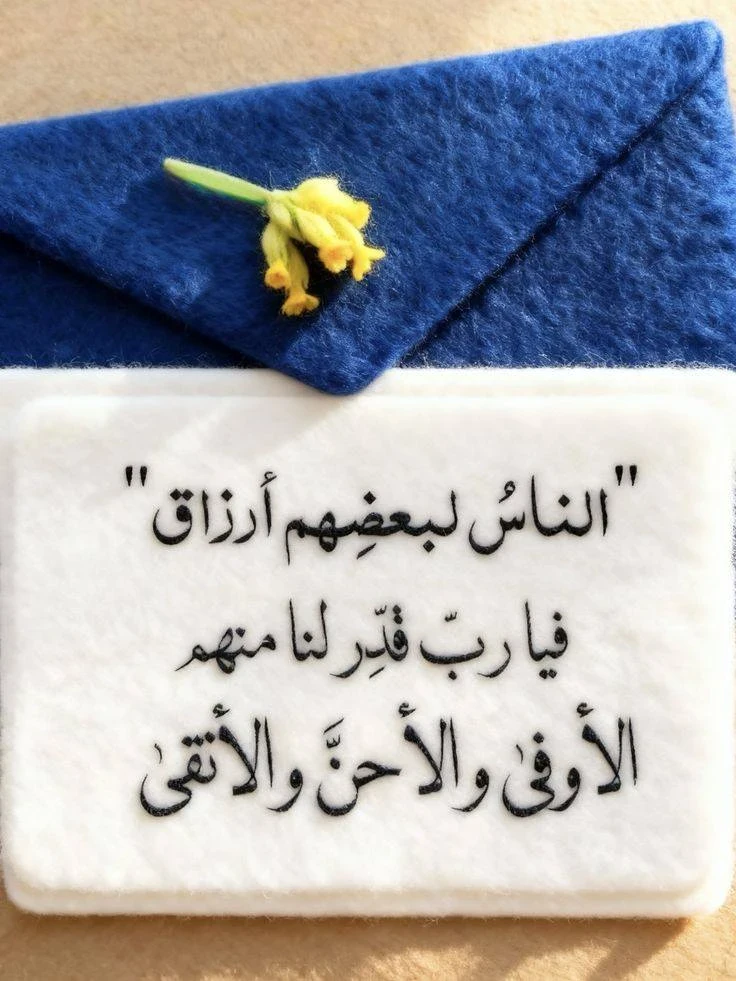 "الناسُ لبعضِهم أرزاق"
فيا ربّ قدِّر لنا منهم
الأوفىٰ والأحنَّ والأنقىٰ